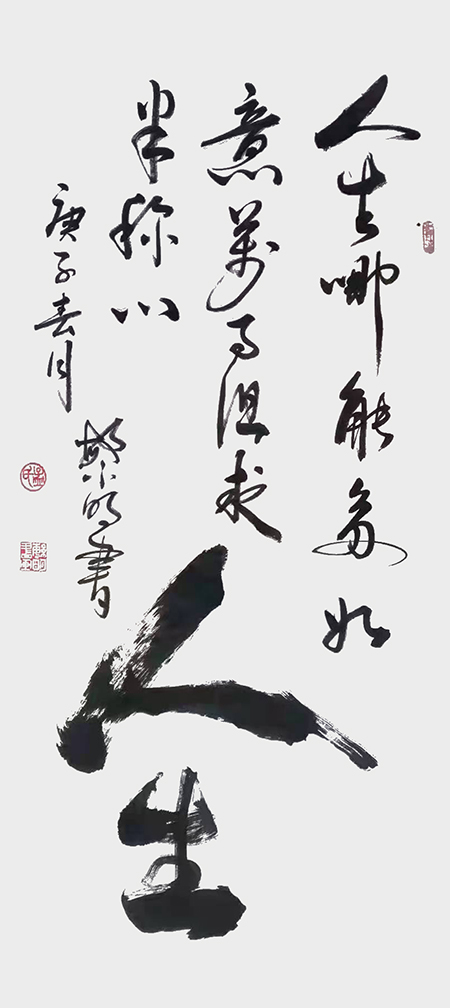 人生哪能多如
意萬事但求
半称心
庚子春月
明書
人生